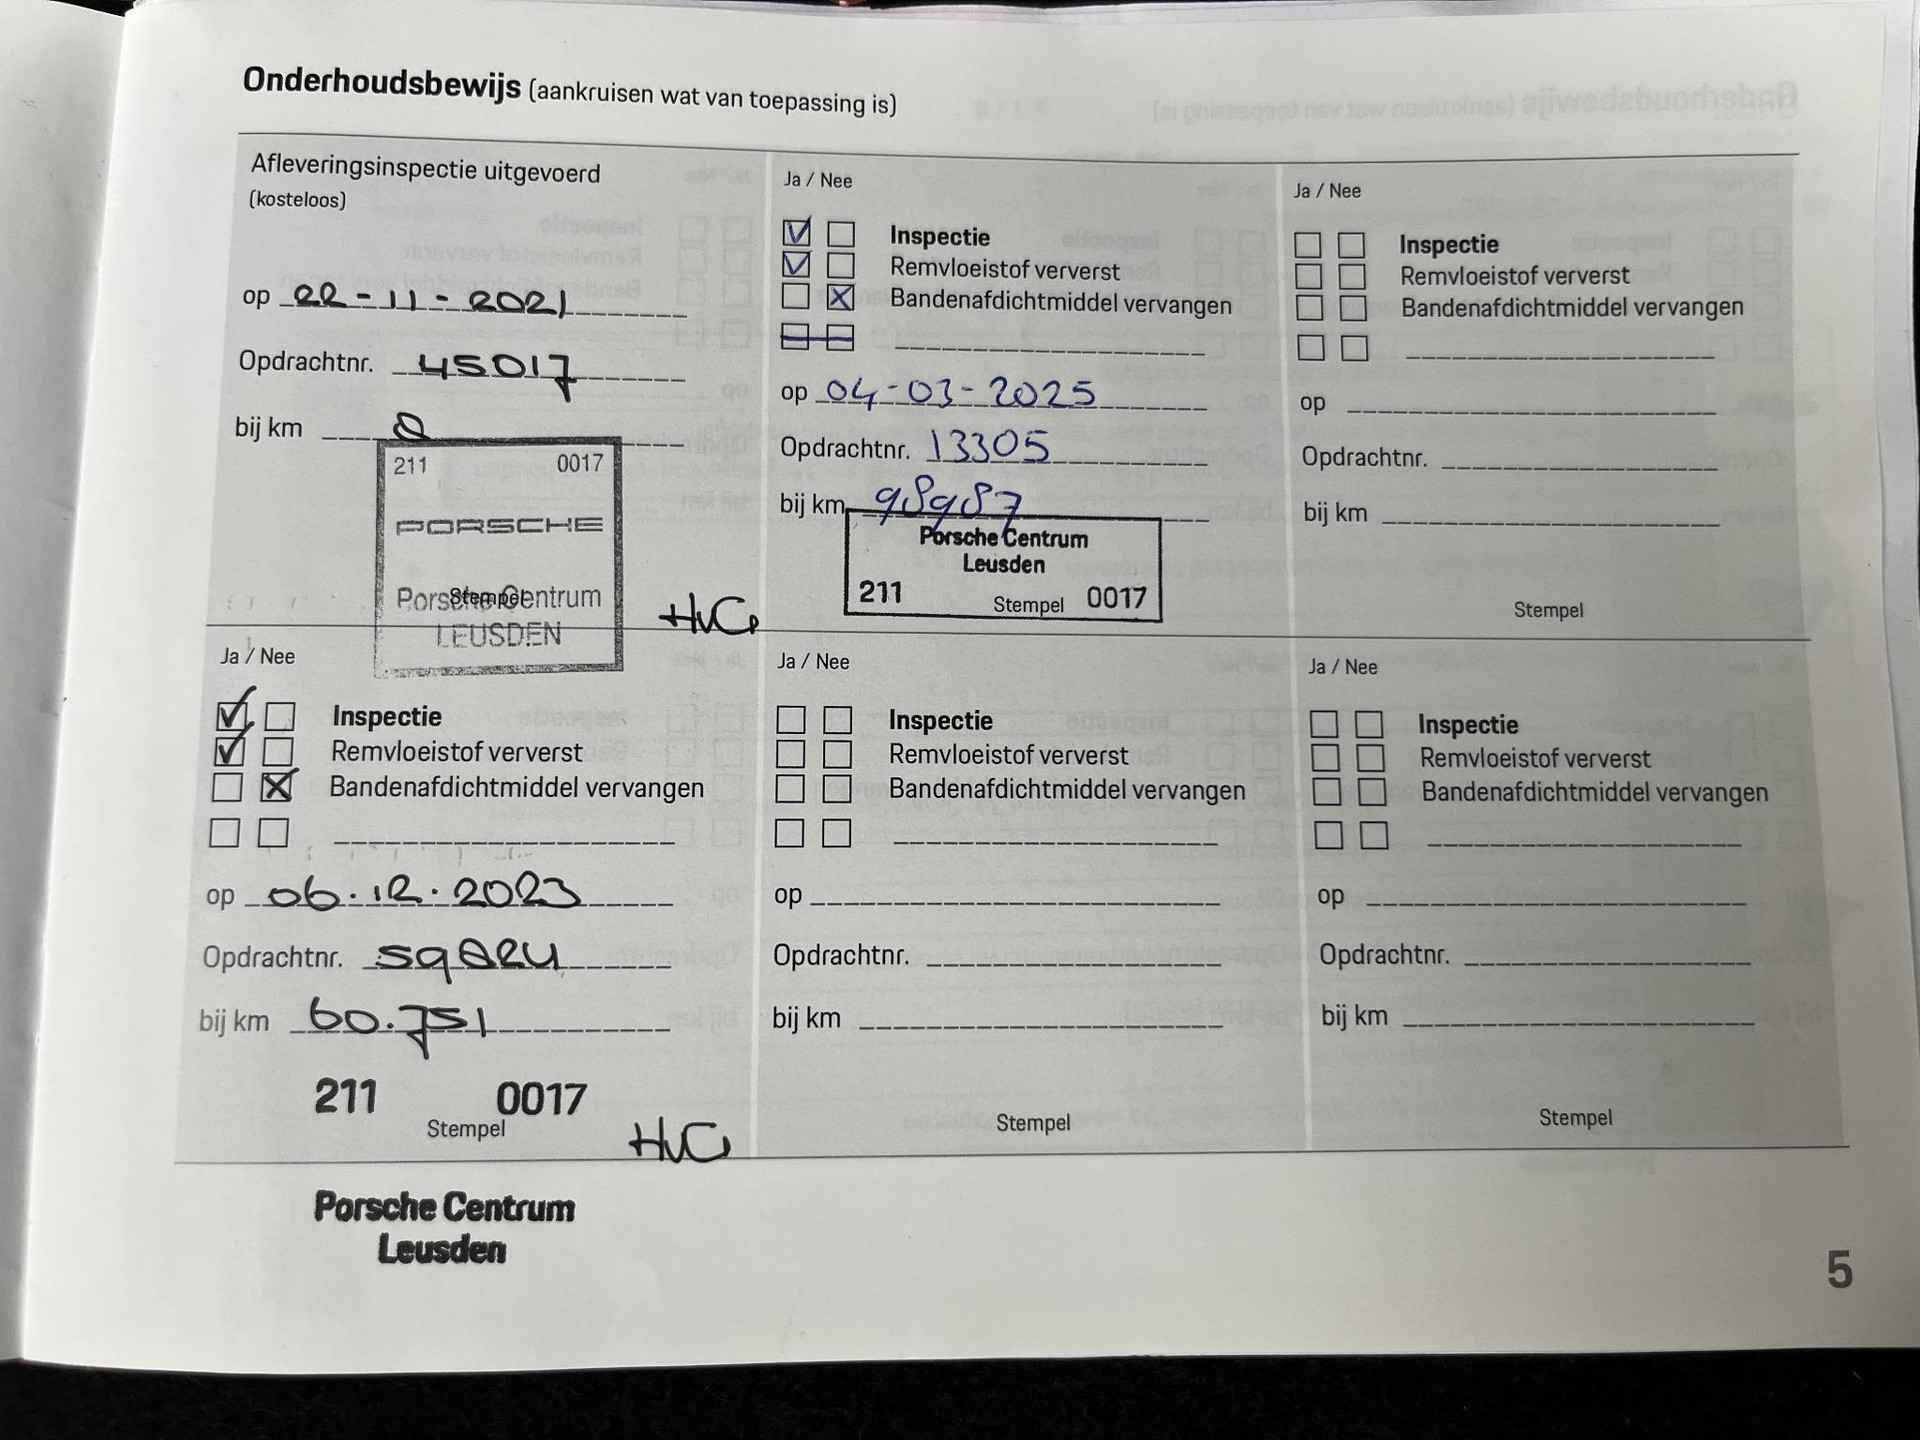 Onderhoudsbewijs (aankruisen wat van toepassing is)
Afleveringsinspectie uitgevoerd
(kosteloos)
op 22-11-2021
Opdrachtnr. 45017
bij km 8
211 0017
PORSCHE
Porsche Centrum
Stempel
LEUSDEN
HvG
Ja / Nee
Inspectie
Remvloeistof ververst
Bandenafdichtmiddel vervangen
op 06.12.2023
Opdrachtnr.
bij km 60.751
211 0017
Stempel
HvG
Porsche Centrum
Leusden
Ja / Nee
Inspectie
Remvloeistof ververst
Bandenafdichtmiddel vervangen
op 04-03-2025
Opdrachtnr. 13305
bij km 98987
Porsche Centrum
Leusden
211 Stempel 0017
Ja / Nee
Inspectie
Remvloeistof ververst
Bandenafdichtmiddel vervangen
op
Opdrachtnr.
bij km
Stempel
Ja / Nee
Inspectie
Remvloeistof ververst
Bandenafdichtmiddel vervangen
op
Opdrachtnr.
bij km
Stempel
Ja / Nee
Inspectie
Remvloeistof ververst
Bandenafdichtmiddel vervangen
op
Opdrachtnr.
bij km
Stempel
5